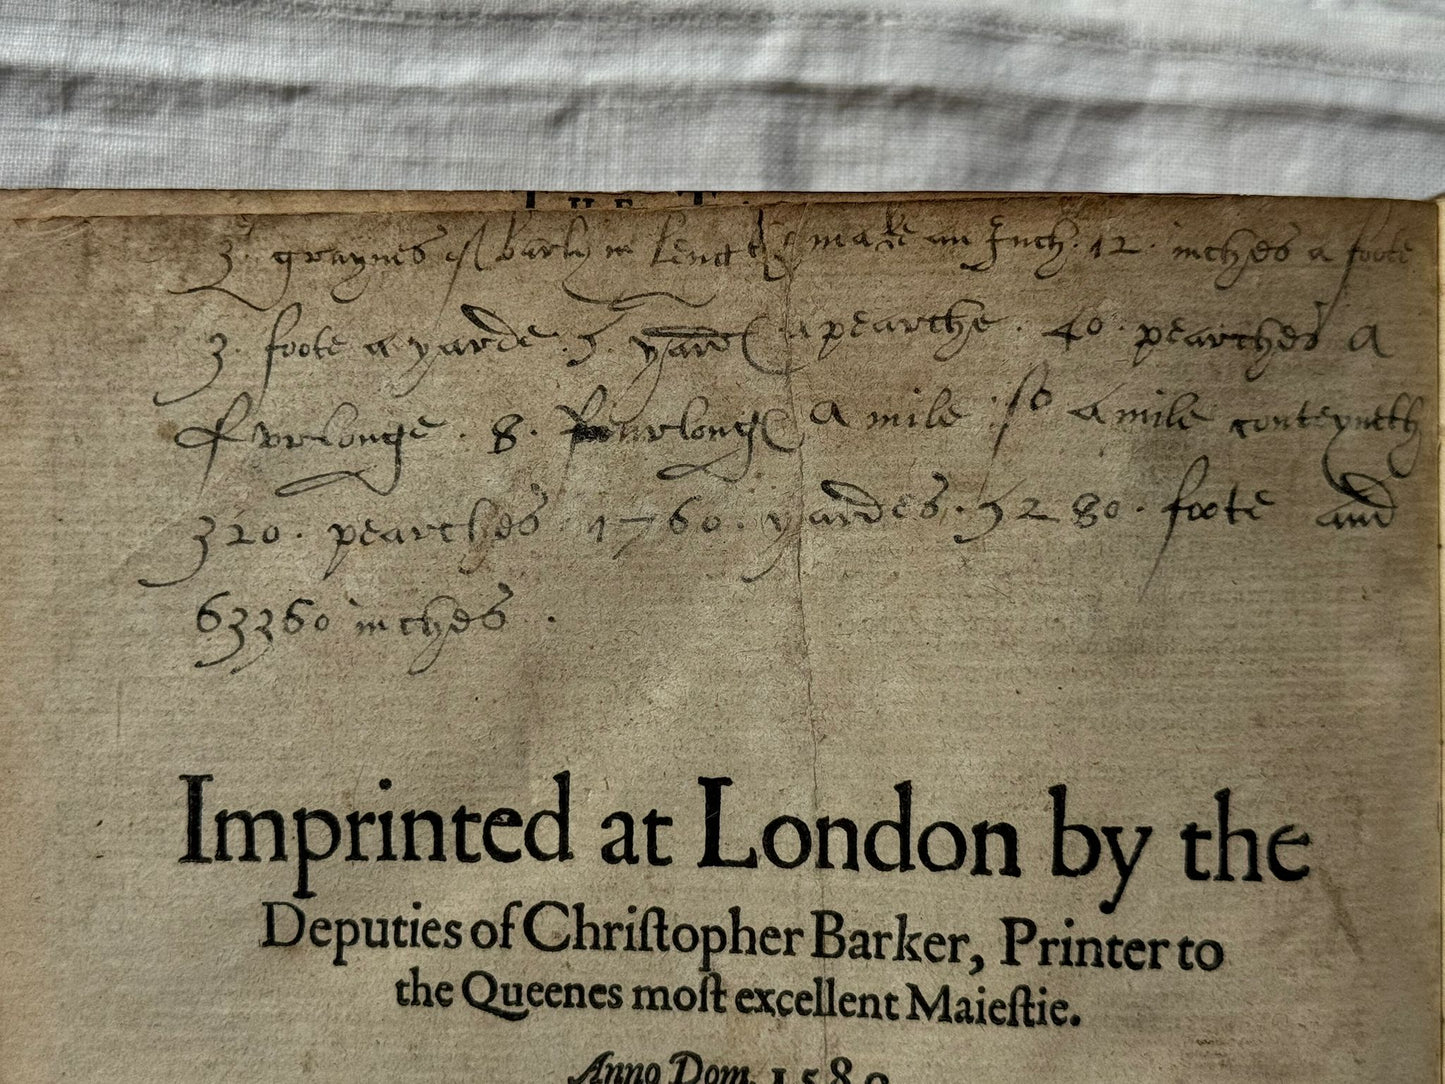 THE T
3. graynes of barly in length make an Inch. 12. inches a foote
3. foote a yarde. 5. yardes a pearche. 40. pearches a
furlonge. 8. fuurlonges a mile. so a mile conteyneth
320. pearches 1760. yardes. 5280. foote and
63360 inches.
Imprinted at London by the
Deputies of Chriſtopher Barker, Printer to
the Queenes moſt excellent Maieſtie.
Anno Dom. 1589